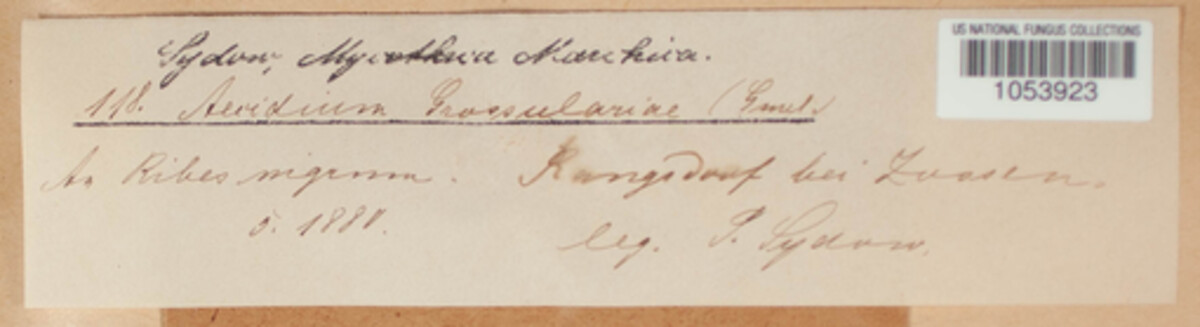 Sydow, Mycotheca Marchica.
118. Aecidium Grossulariae (Gmel.)
An Ribes nigrum. Rangsdorf bei Zossen.
5. 1880.
leg. P. Sydow.
US NATIONAL FUNGUS COLLECTIONS
1053923